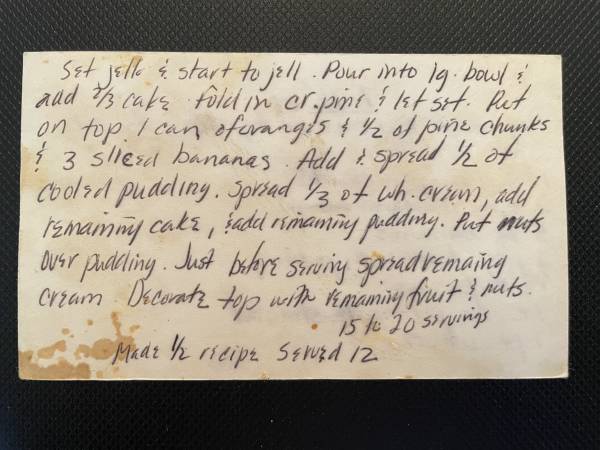 Set jello & start to jell. Pour into lg. bowl &
add 2/3 cake. Fold in cr. pine & let set. Put
on top 1 can of oranges & 1/2 of pine chunks
& 3 sliced bananas. Add & spread 1/2 of
cooled pudding. Spread 1/3 of wh. cream, add
remaining cake, & add remaining pudding. Put nuts
over pudding. Just before serving spread remaing
cream Decorate top with remaining fruit & nuts.
15 to 20 servings
Made 1/2 recipe Served 12